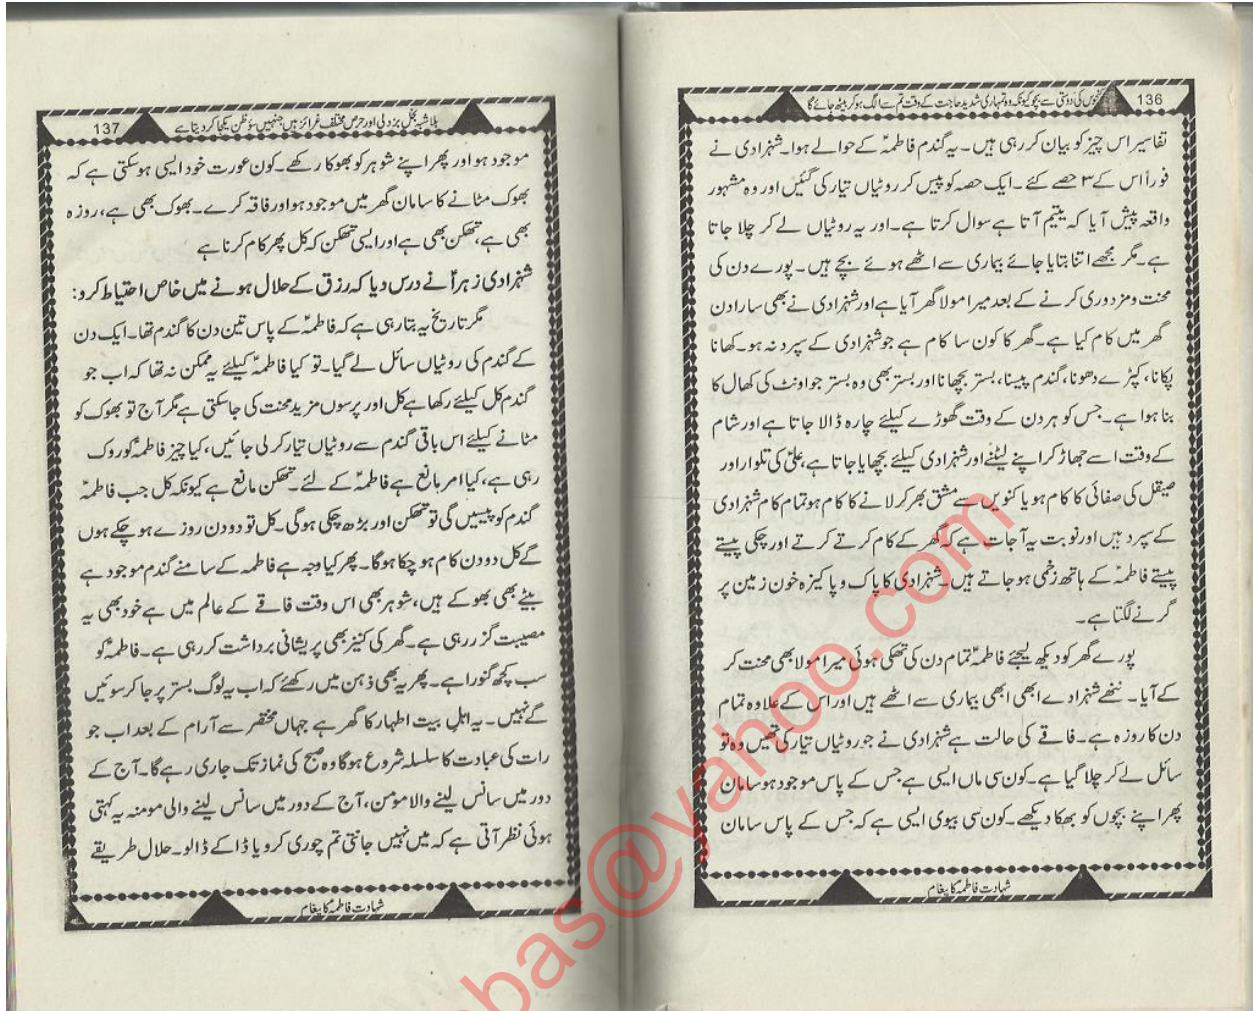 136 کنجوس کی دوستی سے بچو کیونکہ وہ تمہاری شدید حاجت کے وقت تم سے الگ ہو کر بیٹھ جائے گا
تفاسیر اس چیز کو بیان کر رہی ہیں۔ یہ گندم فاطمہؑ کے حوالے ہوا۔ شہزادی نے
فوراً اس کے ۳ حصے کئے۔ ایک حصہ کو پیس کر روٹیاں تیار کی گئیں اور وہ مشہور
واقعہ پیش آیا کہ یتیم آتا ہے سوال کرتا ہے۔ اور یہ روٹیاں لے کر چلا جاتا
ہے۔ مگر مجھے اتنا بتایا جائے بیماری سے اٹھے ہوئے بچے ہیں۔ پورے دن کی
محنت و مزدوری کرنے کے بعد میرا مولا گھر آیا ہے اور شہزادی نے بھی سارا دن
گھر میں کام کیا ہے۔ گھر کا کون سا کام ہے جو شہزادی کے سپرد نہ ہو۔ کھانا
پکانا، کپڑے دھونا، گندم پیسنا، بستر بچھانا اور بستر بھی وہ بستر جو اونٹ کی کھال کا
بنا ہوا ہے۔ جس کو ہر دن کے وقت گھوڑے کیلئے چارہ ڈالا جاتا ہے اور شام
کے وقت اسے جھاڑ کر اپنے لیٹنے اور شہزادی کیلئے بچھایا جاتا ہے، علیؑ کی تلوار اور
صیقل کی صفائی کا کام ہو یا کنویں سے مشق بھر کر لانے کا کام ہو تمام کام شہزادی
کے سپرد ہیں اور نوبت یہ آ جات ہے کہ گھر کے کام کرتے کرتے اور چکی پیستے
پیستے فاطمہؑ کے ہاتھ زخمی ہو جاتے ہیں۔ شہزادی کا پاک و پاکیزہ خون زمین پر
گرنے لگتا ہے۔
پورے گھر کو دیکھ لیجئے فاطمہؑ تمام دن کی تھکی ہوئی میرا مولا بھی محنت کر
کے آیا۔ ننھے شہزادے ابھی ابھی بیماری سے اٹھے ہیں اور اس کے علاوہ تمام
دن کا روزہ ہے۔ فاقے کی حالت ہے شہزادی نے جو روٹیاں تیار کی تھیں وہ تو
سائل لے کر چلا گیا ہے۔ کون سی ماں ایسی ہے جس کے پاس موجود ہو سامان
پھر اپنے بچوں کو بھکا دیکھے۔ کون سی بیوی ایسی ہے کہ جس کے پاس سامان
شہادت فاطمہؑ کا پیغام
137 بلا شبہ بخل بزدلی اور حرص مختلف غرائز ہیں جنہیں سوء ظن یکجا کر دیتا ہے
موجود ہو اور پھر اپنے شوہر کو بھوکا رکھے۔ کون عورت خود ایسی ہو سکتی ہے کہ
بھوک مٹانے کا سامان گھر میں موجود ہو اور فاقہ کرے۔ بھوک بھی ہے، روزہ
بھی ہے، تھکن بھی ہے اور ایسی تھکن کہ کل پھر کام کرنا ہے
شہزادی زہراؑ نے درس دیا کہ رزق کے حلال ہونے میں خاص احتیاط کرو:
مگر تاریخ یہ بتا رہی ہے کہ فاطمہؑ کے پاس تین دن کا گندم تھا۔ ایک دن
کے گندم کی روٹیاں سائل لے گیا۔ تو کیا فاطمہؑ کیلئے یہ ممکن نہ تھا کہ اب جو
گندم کل کیلئے رکھا ہے کل اور پرسوں مزید محنت کی جا سکتی ہے مگر آج تو بھوک کو
مٹانے کیلئے اس باقی گندم سے روٹیاں تیار کر لی جائیں، کیا چیز فاطمہؑ کو روک
رہی ہے، کیا امر مانع ہے فاطمہؑ کے لئے۔ تھکن مانع ہے کیونکہ کل جب فاطمہؑ
گندم کو پیسیں گی تو تھکن اور بڑھ چکی ہوگی۔ کل تو دو دن روزے ہو چکے ہوں
گے کل دو دن کام ہو چکا ہوگا۔ پھر کیا وجہ ہے فاطمہ کے سامنے گندم موجود ہے
بیٹے بھی بھوکے ہیں، شوہر بھی اس وقت فاقے کے عالم میں ہے خود بھی یہ
مصیبت گزر رہی ہے۔ گھر کی کنیز بھی پریشانی برداشت کر رہی ہے۔ فاطمہؑ کو
سب کچھ گنورا ہے۔ پھر یہ بھی ذہن میں رکھئے کہ اب یہ لوگ بستر پر جا کر سوئیں
گے نہیں۔ یہ اہل بیت اطہار کا گھر ہے جہاں مختصر سے آرام کے بعد اب جو
رات کی عبادت کا سلسلہ شروع ہوگا وہ صبح کی نماز تک جاری رہے گا۔ آج کے
دور میں سانس لینے والا مومن، آج کے دور میں سانس لینے والی مومنہ یہ کہتی
ہوئی نظر آتی ہے کہ میں نہیں جانتی تم چوری کرو یا ڈاکے ڈالو۔ حلال طریقے
شہادت فاطمہؑ کا پیغام
bas@yahoo.com